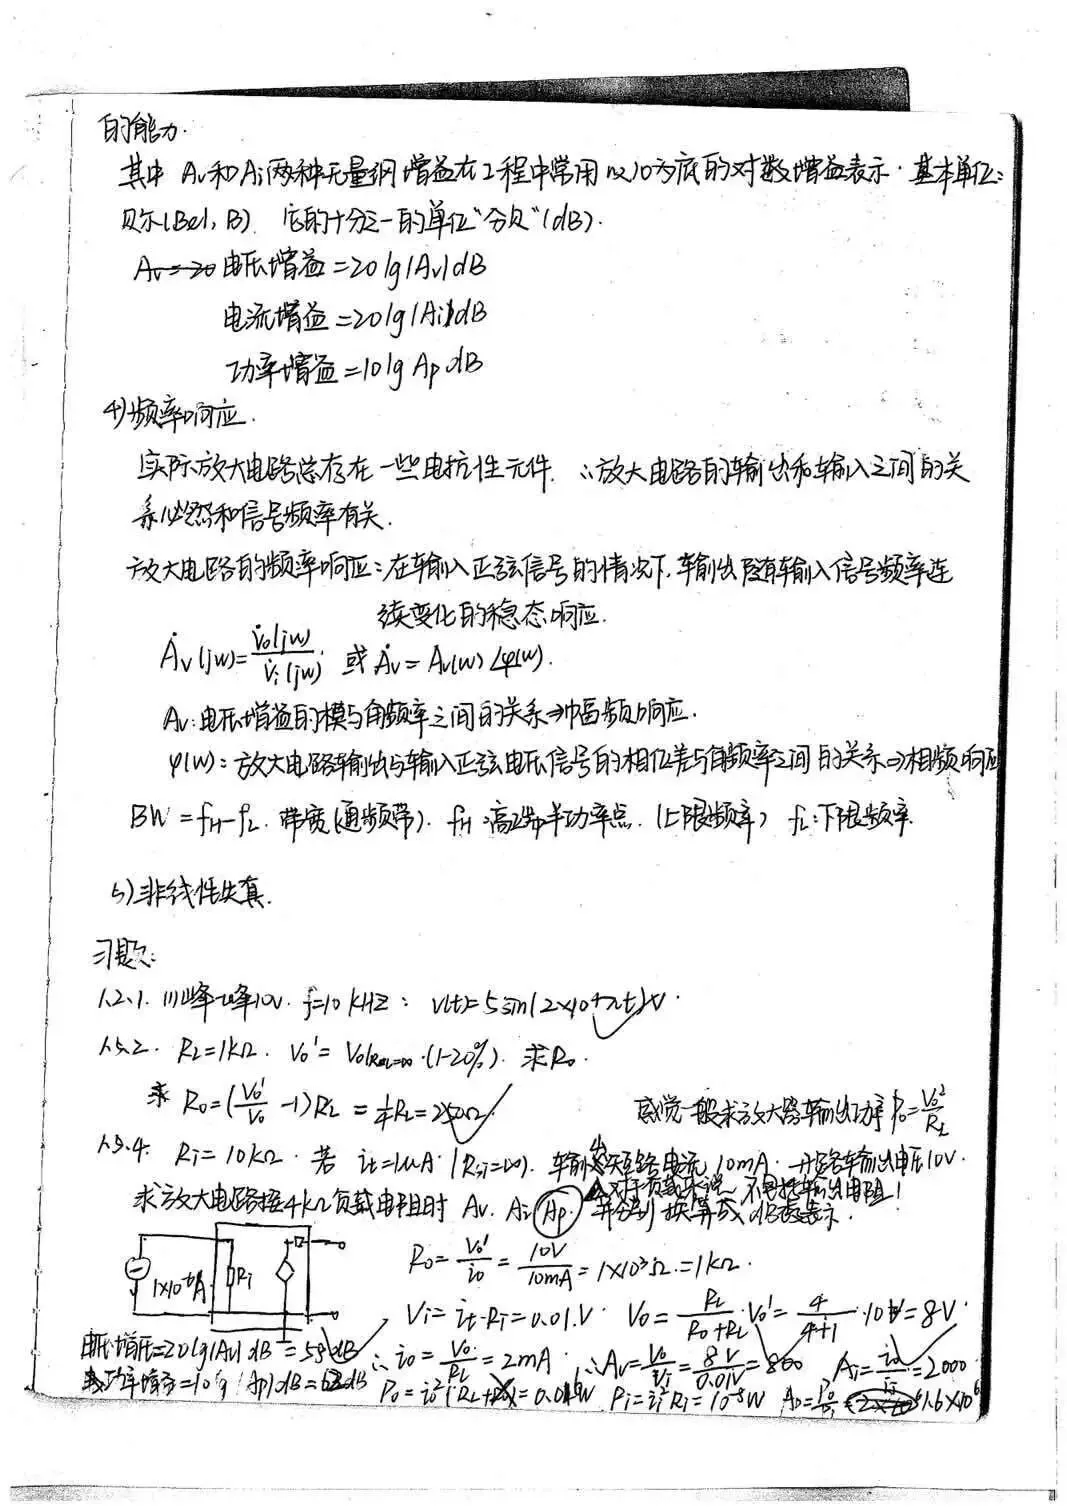 的能力.
其中 Av和Ai两种无量纲增益在工程中常用以10为底的对数增益表示.基本单位:
贝尔(Bel, B) 它的十分之一的单位"分贝"(dB).
电压增益=20lg|Av|dB
电流增益=20lg|Ai|dB
功率增益=10lg Ap dB
4)频率响应.
实际放大电路总存在一些电抗性元件. ∴放大电路的输出和输入之间的关
系必然和信号频率有关.
放大电路的频率响应:在输入正弦信号的情况下,输出随输入信号频率连
续变化的稳态响应.
Ȧv(jw)=V̇o(jw)/V̇i(jw) 或 Ȧv = Av(w)∠φ(w).
Av:电压增益的模与角频率之间的关系⇒幅频响应.
φ(w):放大电路输出与输入正弦电压信号的相位差与角频率之间的关系⇒相频响应
BW = fH-fL. 带宽(通频带). fH:高端半功率点.(上限频率) fL:下限频率.
5)非线性失真.
习题:
1.2.1. (1)峰-峰10V. f=10kHz: v(t)=5sin(2×10⁴πt)V.
1.5.2. RL=1kΩ. Vo'= Vo|RL=∞·(1-20%). 求Ro.
求 Ro=(Vo'/Vo -1)RL = ¼RL=250Ω.
感觉一般求放大器输出功率Po=Vo²/RL
1.5.4. Ri=10kΩ. 若 ii=1μA.(Rsi=∞). 输出短路电流10mA. 开路输出电压10V.
对于负载来说 不包括输出电阻!
求放大电路接4kΩ负载电阻时 Av. Ai Ap 并分别换算成dB表示.
Ro= Vo'/io = 10V/10mA = 1×10³Ω.=1kΩ.
1×10⁻⁶A Ri
Vi= ii·Ri=0.01V. Vo= RL/(Ro+RL)·Vo'= 4/(4+1)·10V=8V.
电压增压=20lg|Av|dB=58dB
∴io= Vo/RL = 2mA. ∴Av= Vo/Vi = 8V/0.01V =800 Ai= io/ii =2000
功率增益=10lg|Ap|dB=62dB
Po=io²·RL=0.016W Pi=ii²Ri=10⁻⁸W Ap=Po/Pi=1.6×10⁶